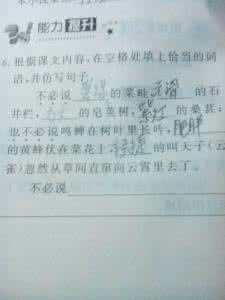 能力提升
6. 根据课文内容,在空格处填上恰当的词
语,并仿写句子。
不必说碧绿的菜畦,光滑的石
井栏,高大的皂荚树,紫红的桑葚;
也不必说鸣蝉在树叶里长吟,肥胖
的黄蜂伏在菜花上,轻捷的叫天子(云
雀)忽然从草间直窜向云霄里去了。
不必说